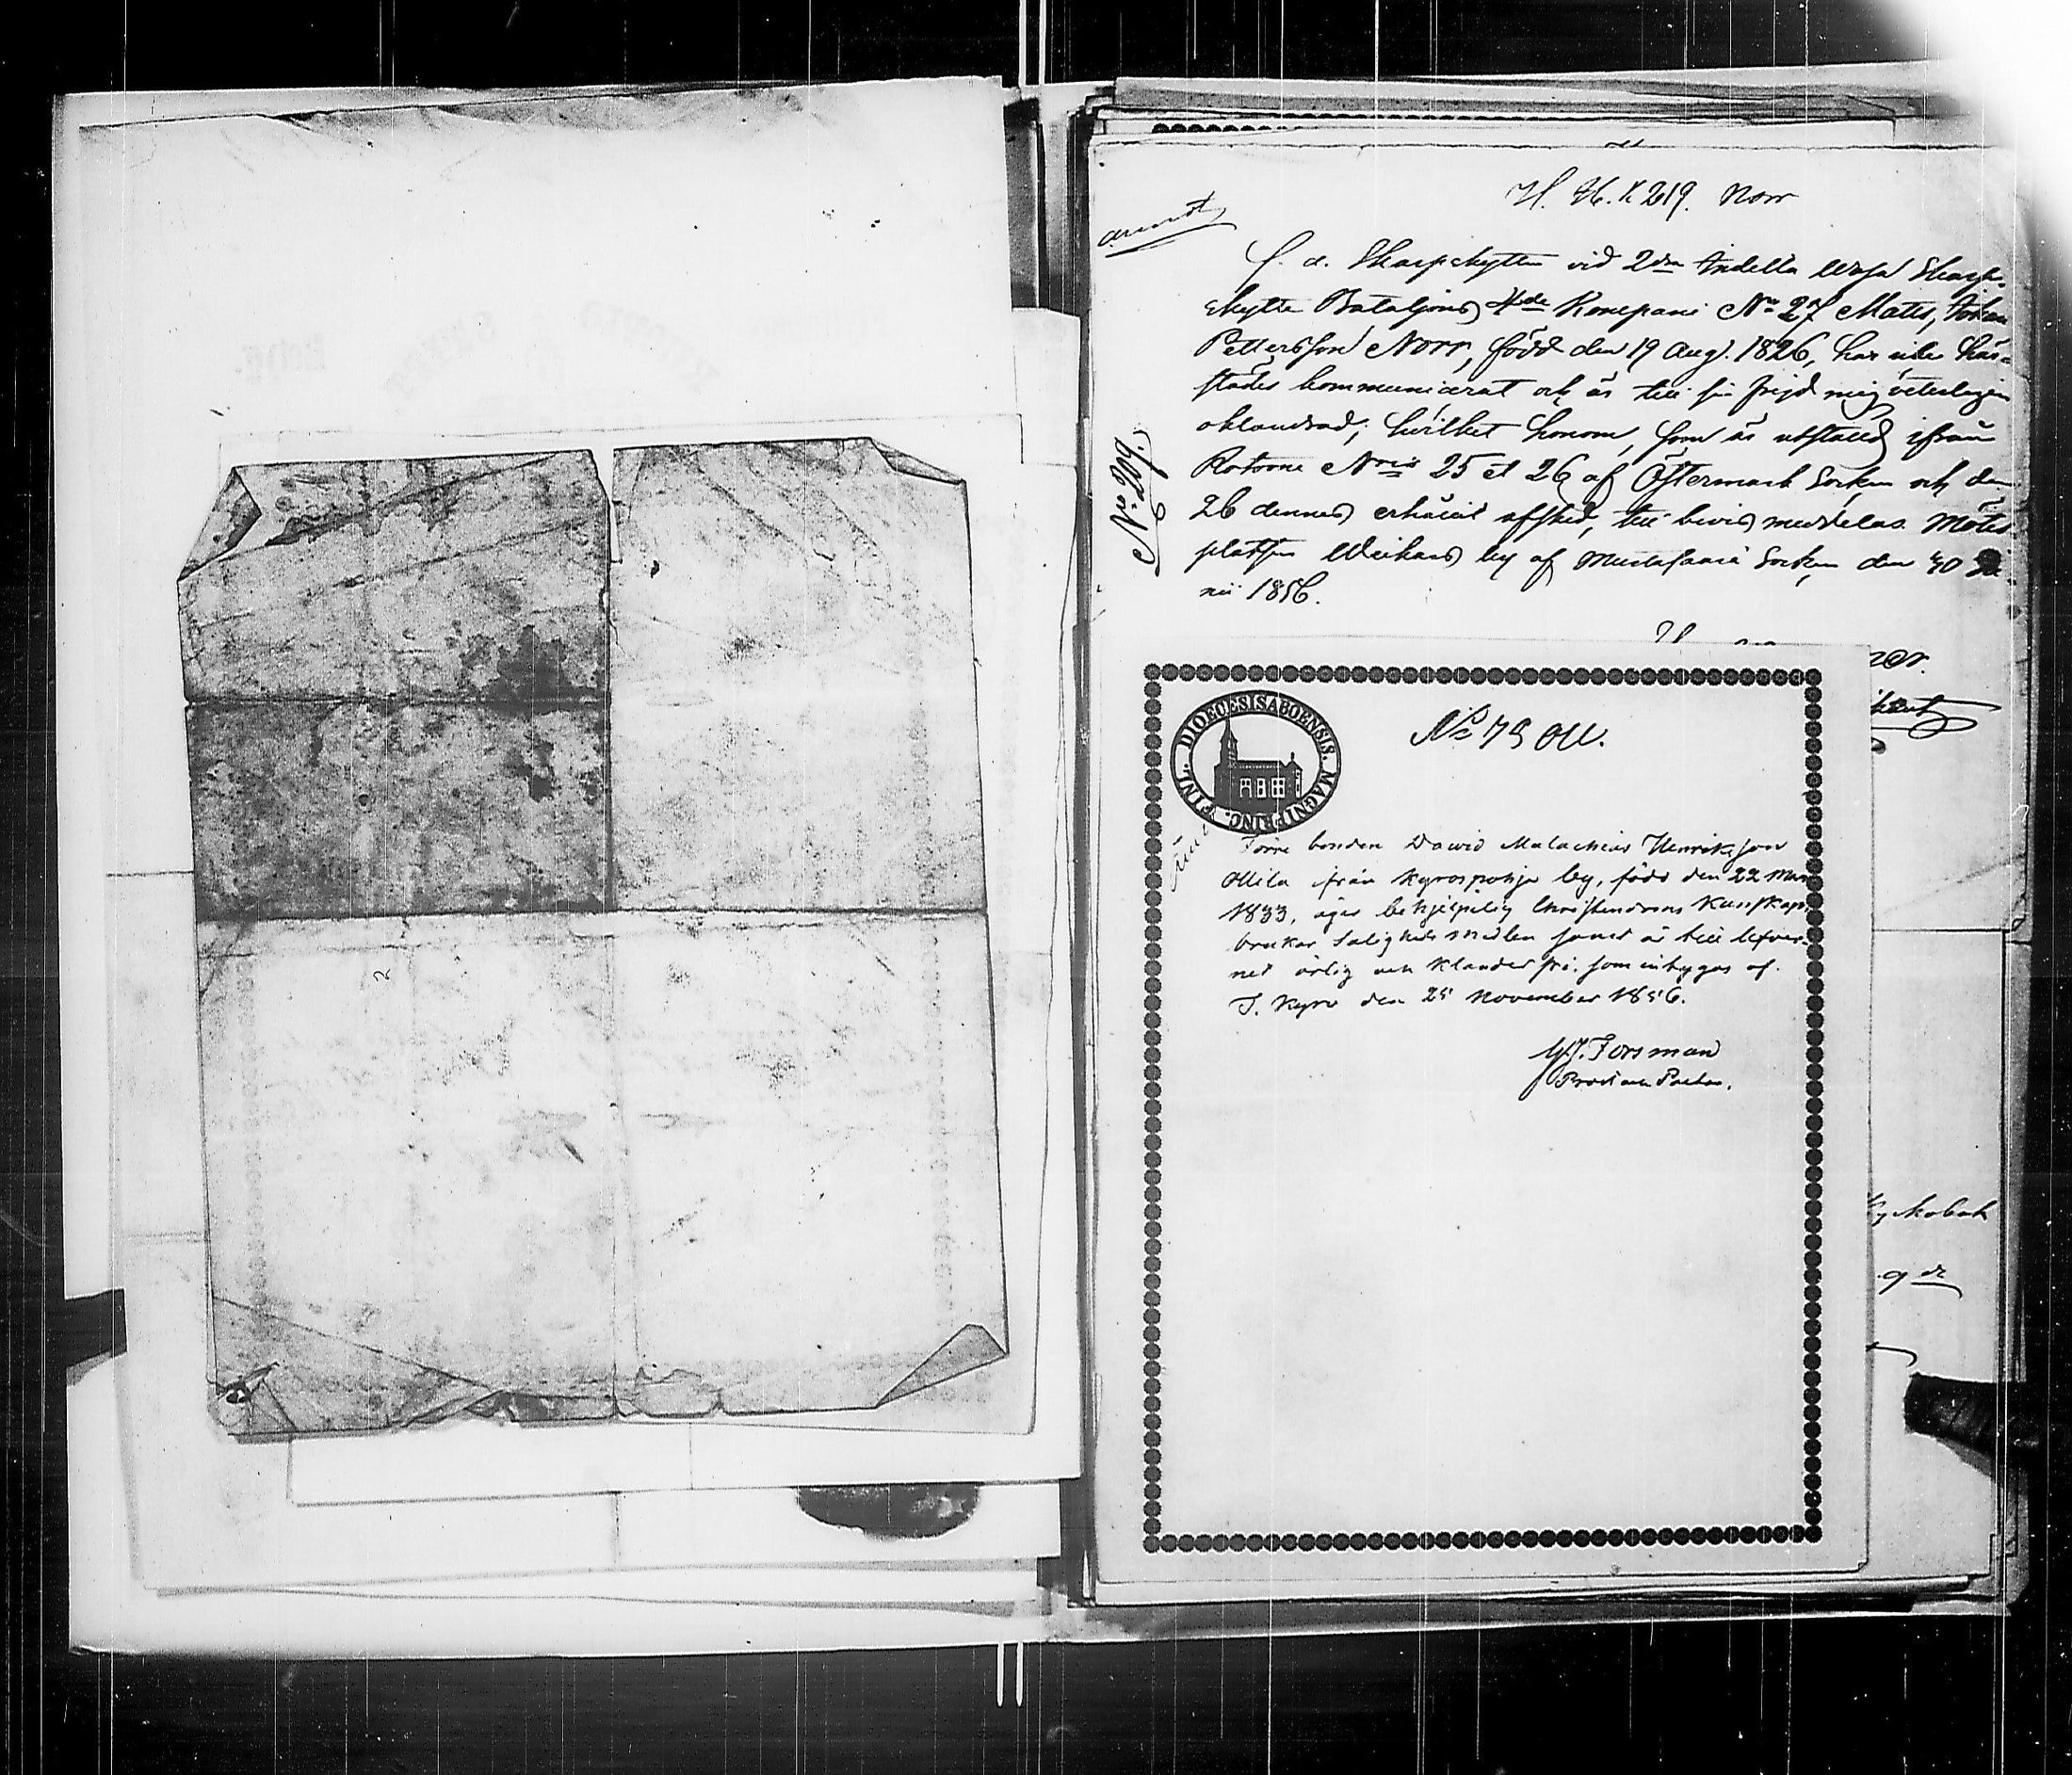 H. H. K 219. Norr
F. d. Skarpskytten vid 2dra Indelta Wasa Skarp-
skytte Bataljons 4de Kompani No 27 Matts Johan
Pettersson Norr, född den 19 Aug. 1826, har här-
städes kommunicerat och är till sin frejd mig veterligen
oklandrad; hvilket honom, som är utstäld ifrån
Rotorne Nris 25 et 26 af Östermark Socken och den
26 dennes erhållit afsked, till bevis meddelas. Mötes-
platsen by af Mustasaari Socken den 30 Ju-
nii 1856.
No 209.
No 79 Oll.
DIOECESIS ABOENSIS. MAGNI PRINC. FINL.
Förre bonden David Malachias Henriksson
Ollila ifrån Kyrospohja by, född den 22 Mars
1833, äger behjelplig Christendoms Kunskap,
brukar Salighets medlen samt är till lefver-
net ärlig och klanderfri, som intygas af.
T. Kyro den 25 November 1856.
Forsman
Prost och Pastor.